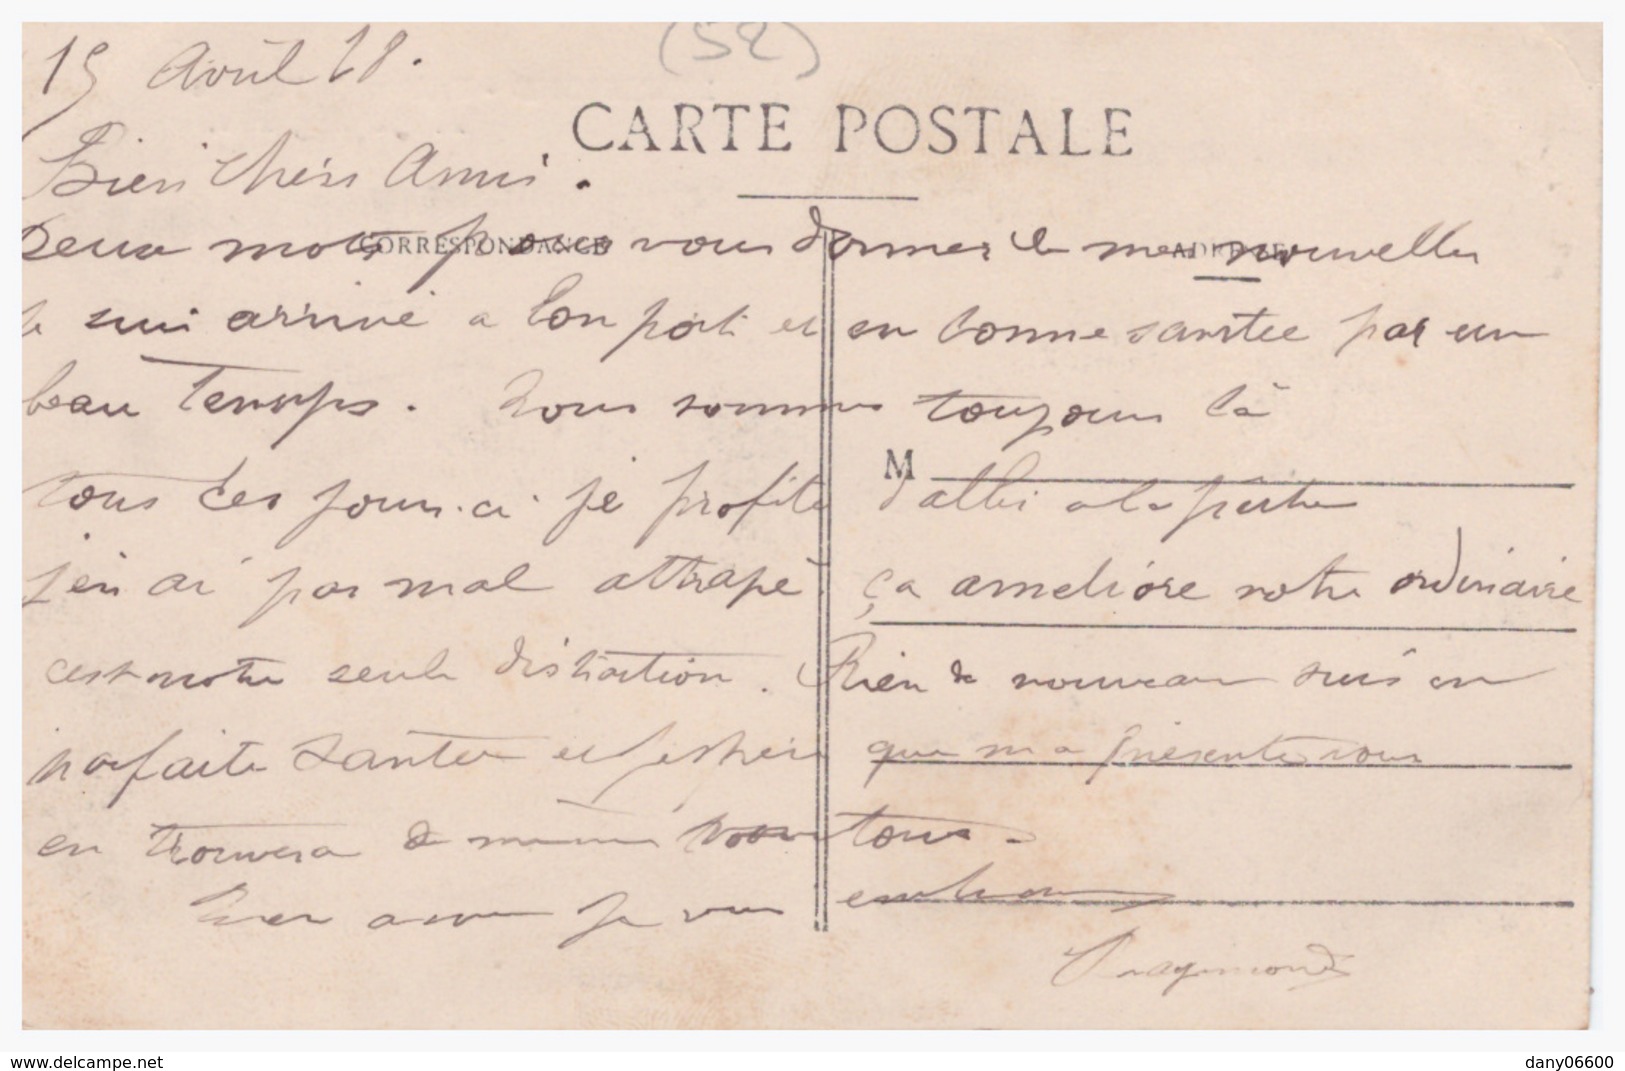 (52)
15 Avril 18.
CARTE POSTALE
Bien chers Amis.
CORRESPONDANCE
ADRESSE
Deux mots pour vous donner de mes nouvelles
je suis arrivé a bon port et en bonne santee par un
beau Temps. Nous sommes toujours là
M
tous ces jours-ci je profite d'aller a la pêche
j'en ai pas mal attrapé ça ameliore notre ordinaire
cest notre seule distraction. Rien de nouveau suis en
parfaite santee et j'espère que ma présente vous
en trouvera de même tous.
je vous embrasse
Raymond
www.delcampe.net
dany06600